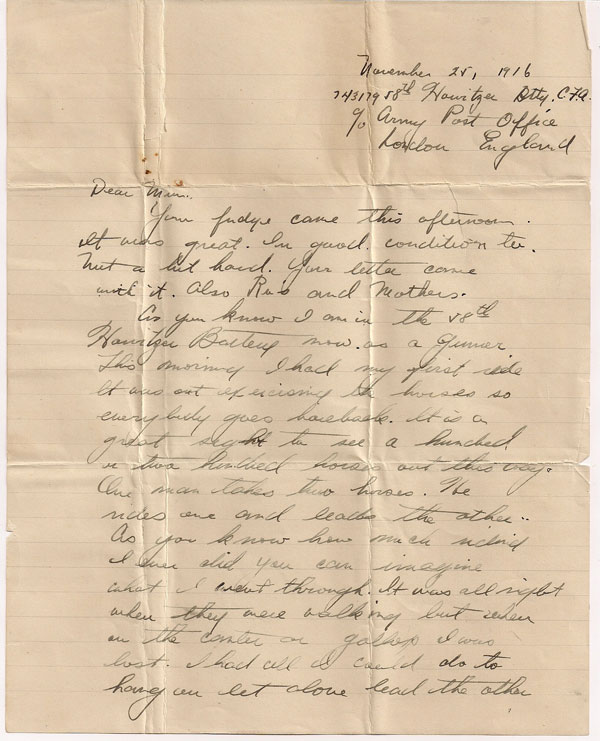 November 25, 1916
743179 58th Howitzer Btty. C.F.A.
c/o Army Post Office
London England
Dear Mim..
Your fudge came this afternoon.
It was great. In good condition to.
Not a bit hard. Your letter came
with it. Also Rus and Mothers.
As you know I am in the 58th
Howitzer Battery now as a Gunner.
This morning I had my first ride
It was out exercising the horses so
everybody goes horseback. It is a
great sight to see a hundred
or two hundred horses out this way.
One man takes two horses. He
rides one and leads the other..
As you know how much riding
I ever did you can imagine
what I went through. It was all right
when they were walking but when
on the canter or gallop I was
lost. I had all I could do to
hang on let alone lead the other